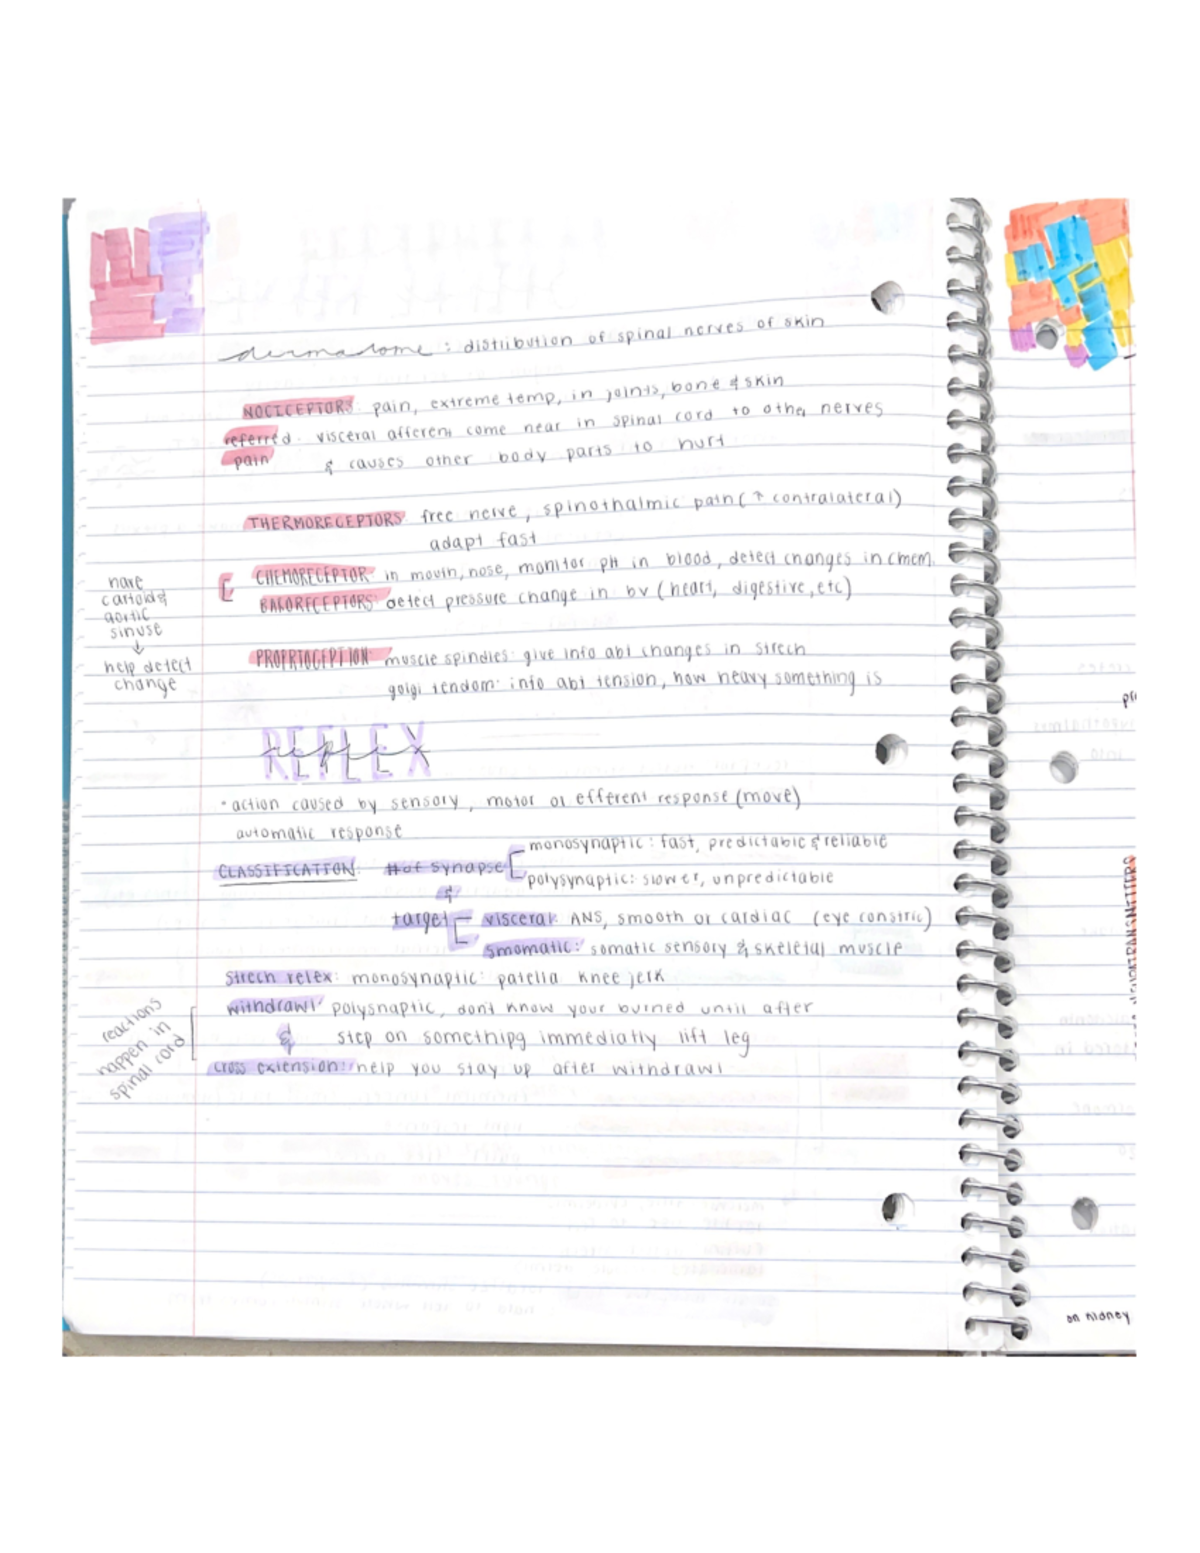 dermatome : distribution of spinal nerves of skin
NOCICEPTORS: pain, extreme temp, in joints, bone & skin
referred pain: visceral afferent come near in spinal cord to other nerves
& causes other body parts to hurt
THERMORECEPTORS: free nerve, spinothalmic path (↑ contralateral)
adapt fast
CHEMORECEPTOR: in mouth, nose, monitor pH in blood, detect changes in chem.
BARORECEPTORS: detect pressure change in bv (heart, digestive, etc)
have
carotoid &
aortic
sinuse
↓
help detect
change
PROPRIOCEPTION: muscle spindles: give info abt changes in strech
golgi tendom: info abt tension, how heavy something is
REFLEX
reflex
• action caused by sensory, motor or efferent response (move)
automatic response
CLASSIFICATION: # of synapse
monosynaptic: fast, predictable & reliable
polysynaptic: slower, unpredictable
&
target
visceral: ANS, smooth or cardiac (eye constric)
smomatic: somatic sensory & skeletal muscle
strech relex: monosynaptic: patella knee jerk
withdrawl: polysnaptic, dont know your burned until after
& step on something immediatly lift leg
cross extension: help you stay up after withdrawl
reactions
happen in
spinal cord
on kidney